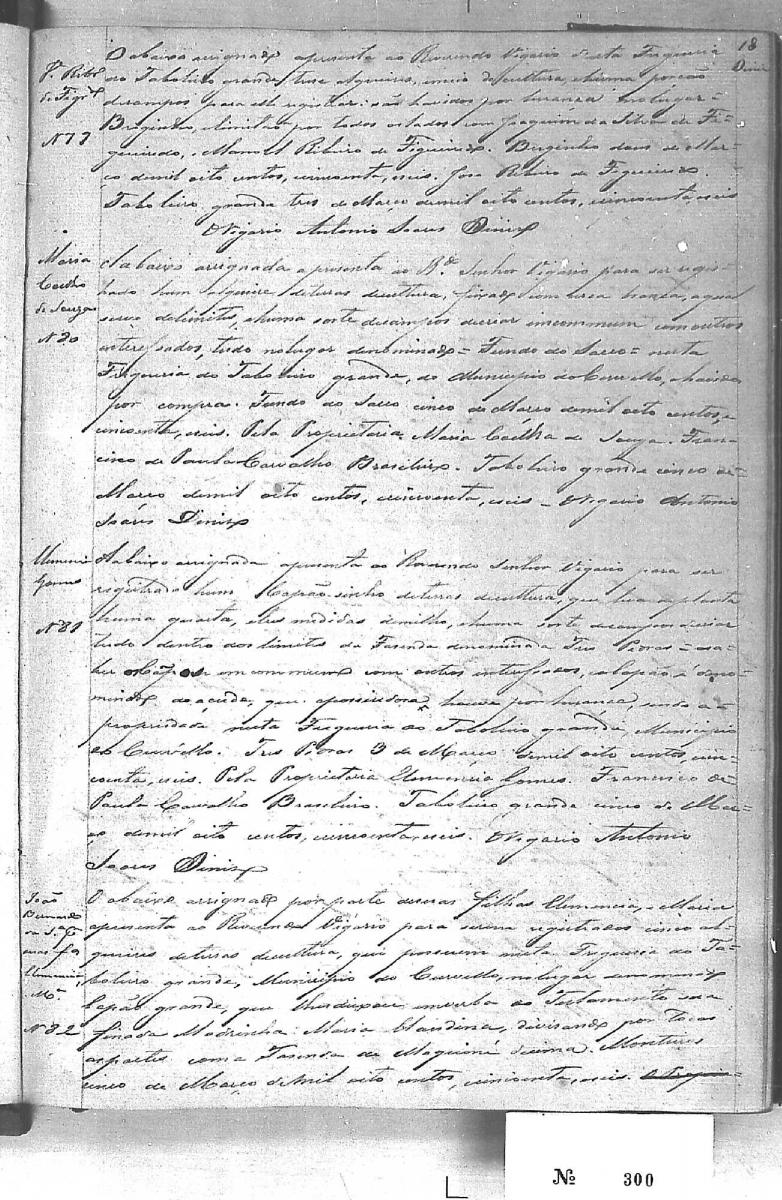 18
Diniz
O abaixo assignado apresenta ao Reverendo Vigario desta Freguesia
do Taboleiro grande treze alqueires, e meio de cultura, e huma porção
de campos para ser registrar: são havidos por herança no lugar =
Berginho, e limitão por todos os lados com Joaquim da Silva de Fi=
gueiredo, e Manoel Ribeiro de Figueiredo. Berginho dous de Mar=
ço de mil oito centos, cincoenta, e seis. José Ribeiro de Figueiredo.
Taboleiro grande tres de Março de mil oito centos, cincoenta, e seis
O Vigario Antonio Soares Diniz
J. Ribro
de Figdo
N 79
A abaixo assignada apresenta ao Rdo Senhor Vigario para ser regis=
trado hum alqueire de terras de cultura,
serve de limites, e huma sorte de campos de criar em commum com outros
interessados, tudo no lugar denominado = Fundo do Sacco = nesta
Freguesia do Taboleiro grande, do Municipio do Curvello, e havido
por compra. Fundo do Sacco cinco de Março de mil oito centos, e
cincoenta, e seis. Pela Proprietaria Maria Coelha de Souza. Fran=
cisco de Paula Carvalho Brasileiro. Taboleiro grande cinco de
Março de mil oito centos, cincoenta, e seis = O Vigario Antonio
Soares Diniz
Maria
Coelho
de Souza
N 80
A abaixo assignada apresenta ao Reverendo Senhor Vigario para ser
registrado hum Capão sinho de terras de cultura, que leva de planta
huma quarta, e tres medidas de milho, e huma sorte de campos de criar
tudo dentro dos limites da Fasenda denominada Tres Pioras = a sa=
ber o campo em commum com outros interessados, e o Capão é deno=
minado do açude, que a possuidora houve por herança, sendo a
propriedade nesta Freguesia do Taboleiro grande, Municipio
do Curvello. Tres Pioras 3 de Março de mil oito centos, cin=
coenta, e seis. Pela Proprietaria Clemencia Gomes. Francisco de
Paula Carvalho Brasileiro. Taboleiro grande cinco de Mar=
ço de mil oito centos, cincoenta, e seis. O Vigario Antonio
Soares Diniz
Clemencia
Gomes
N 81
O abaixo assignado por parte de suas filhas Clemencia, e Maria
apresenta ao Reverendo Vigario para serem registrados cinco al=
queires de terras de cultura, que possuem nesta Freguesia do Ta=
boleiro grande, Municipio do Curvello, no lugar denominado
Capão grande, que lhes deixou em verba de Testamento sua
finada Madrinha Maria Claudina, divisando por todas
as partes com a Fasenda de Maquiné de cima. Monteiros
cinco de Março de mil oito centos, cincoenta, e seis.
João
Bernardo
Clemencia,
Ma
N 82
Nº 300